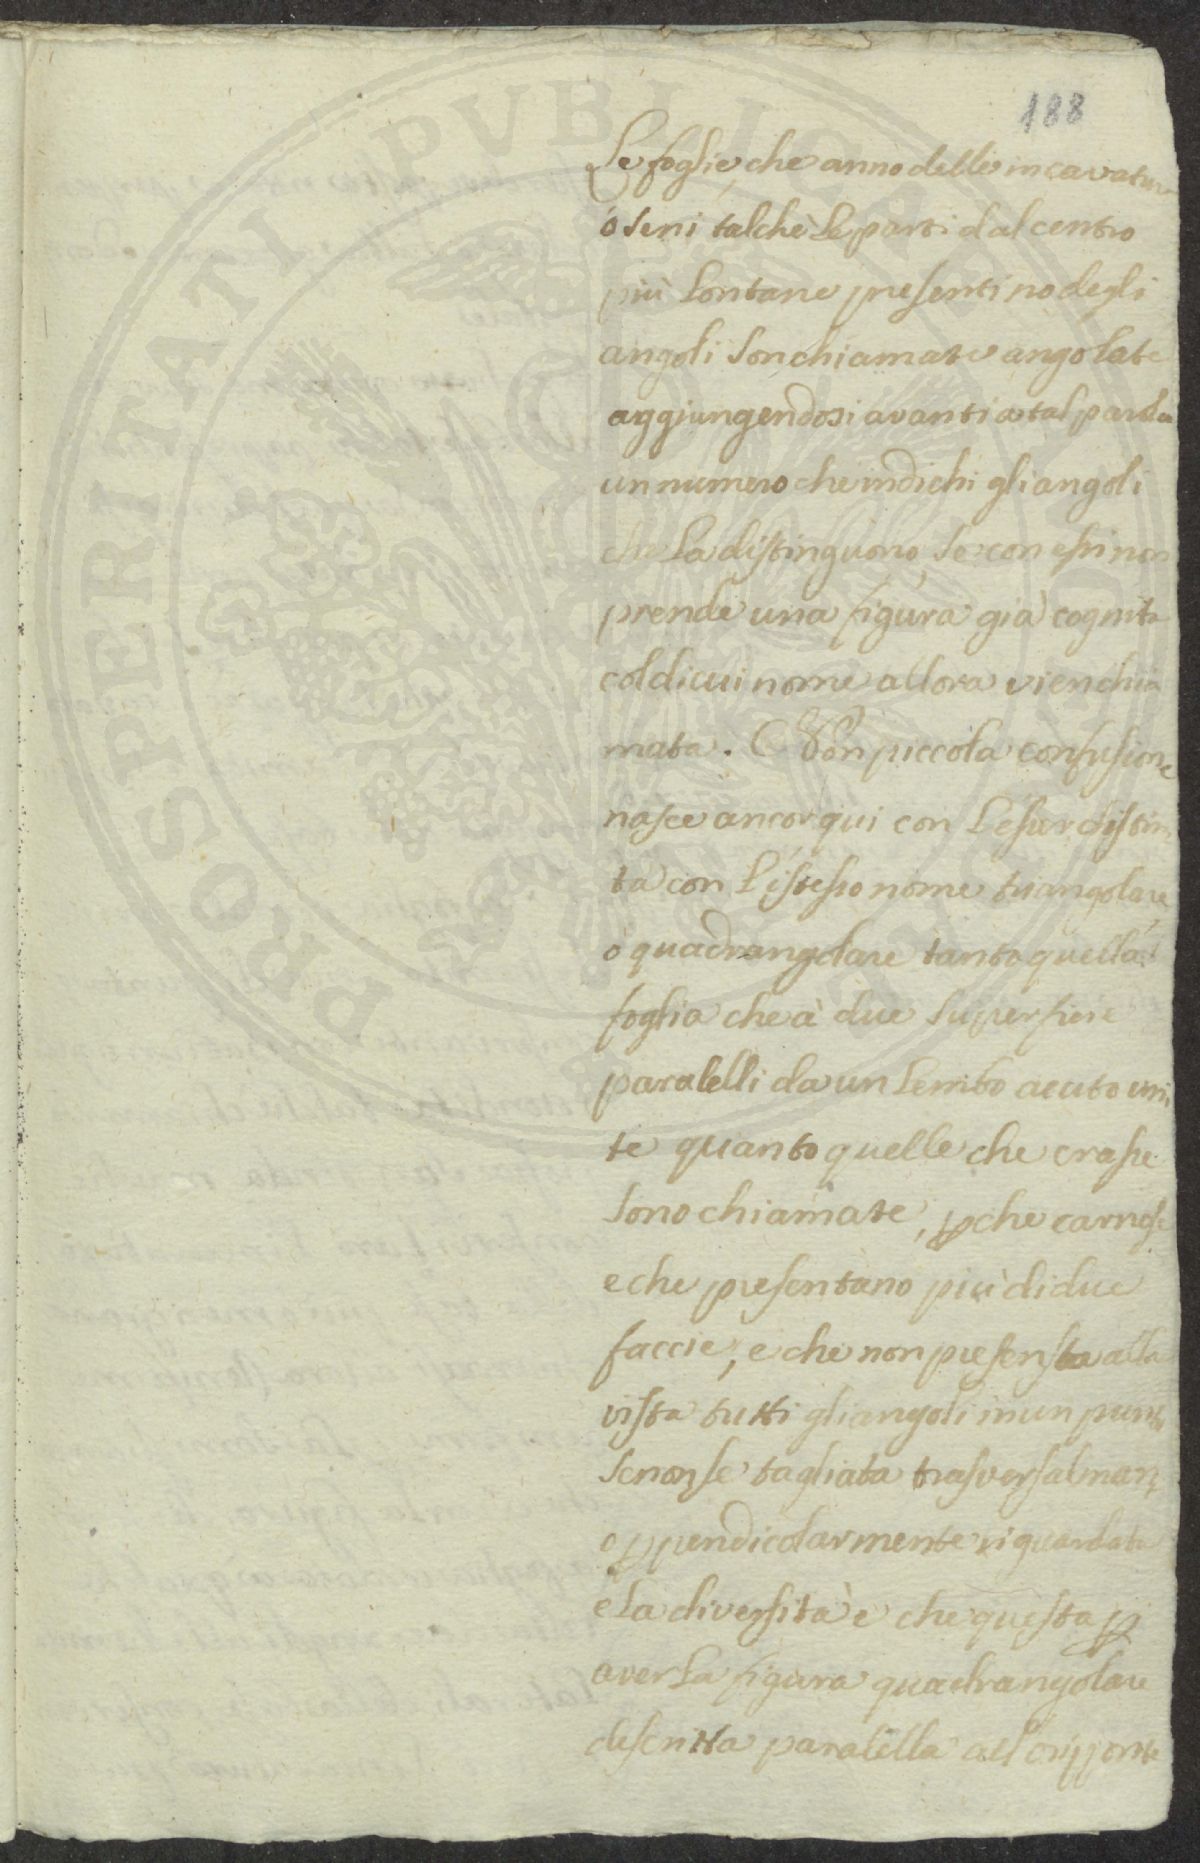 188
Le foglie, che anno delle incavature
ó seni talchè Le parti dal centro
più Lontane presentino degli
angoli son chiamate angolate
aggiungendosi avanti a tal parola
un numero che indichi gli angoli
che La distinguono, se con essi non
prende una figura già cognita
col di cui nome allora vien chia
mata. Non piccola confusione
nasce ancor qui con L'esser distin
ta con L'istesso nome triangolare,
ò quadrangolare tanto quella
foglia che à due superficie
paralelli da un Lembo acuto uni
te quanto quelle che crasse
sono chiamate, pche carnose
e che presentano più di due
faccie, e che non presenta alla
vista tutti gli angoli in un punto
se non se tagliata trasversalmen
o ppendicolarmente riguardata
e La diversità è che questa p
aver La figura quadrangolare
descritta paralella all'orizzonte
PROSPERITATI PVBLICAE